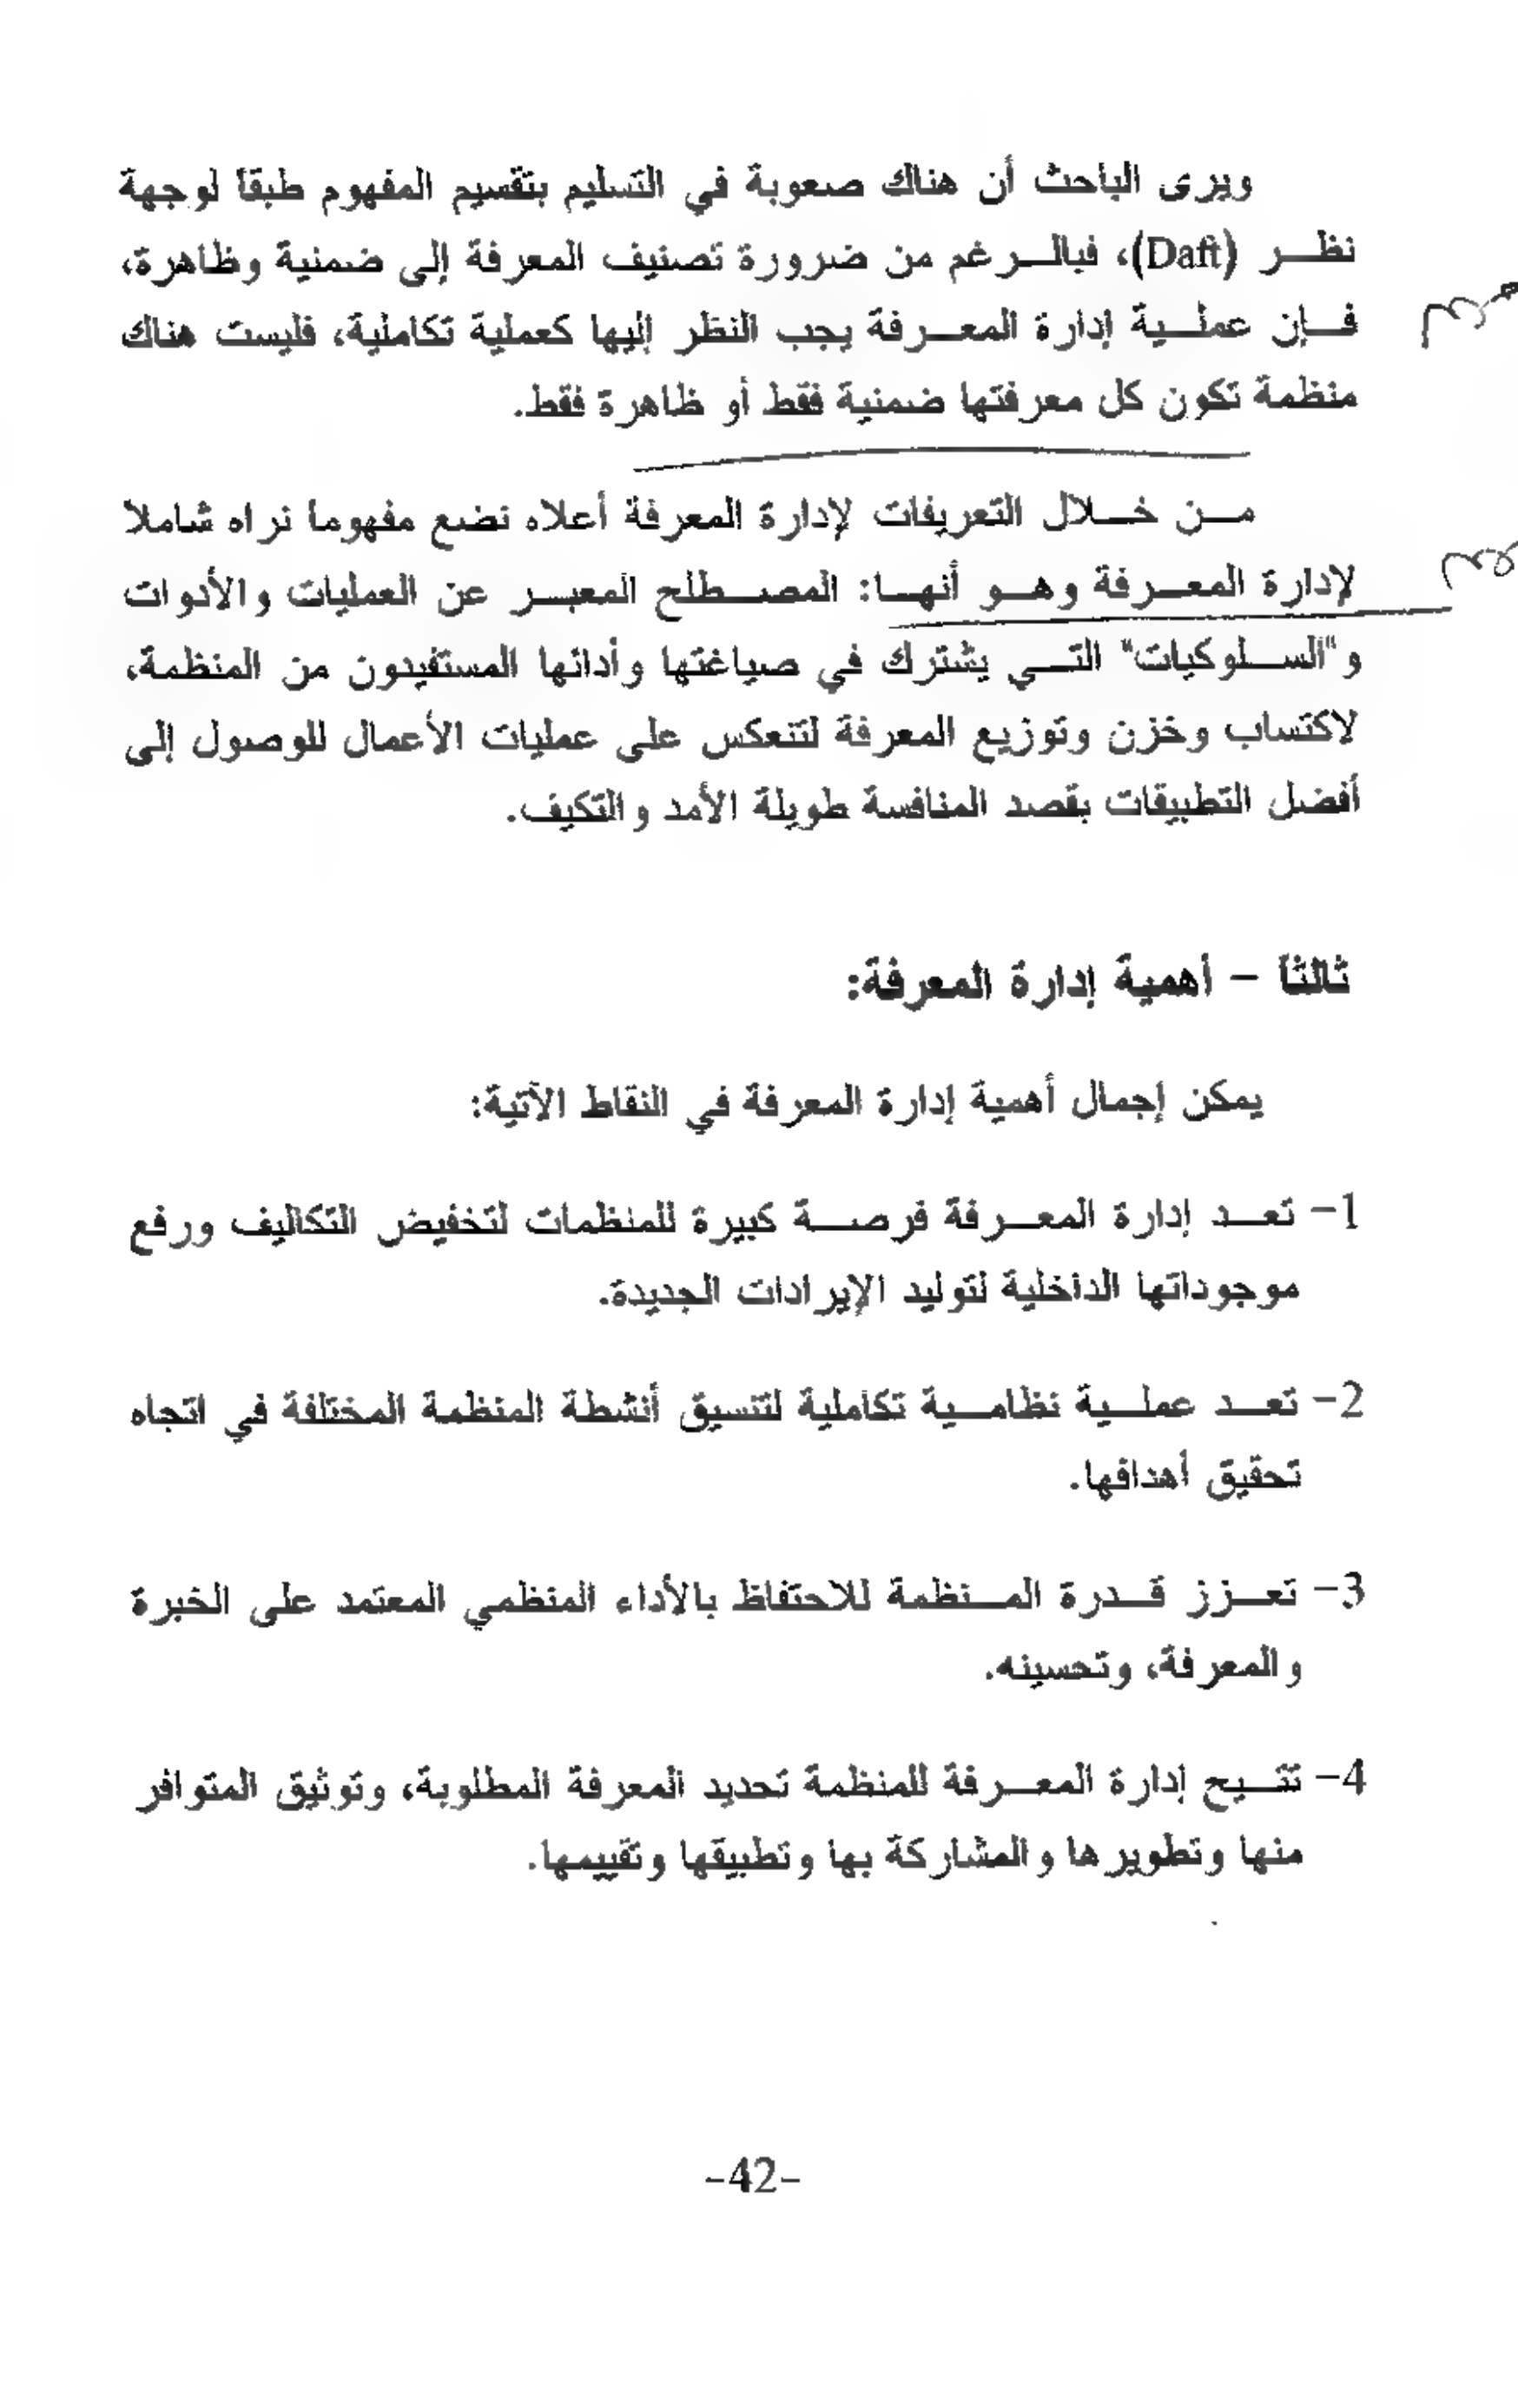 ويرى الباحث أن هناك صعوبة في التسليم بتقسيم المفهوم طبقا لوجهة
نظر (Daft)، فبالرغم من ضرورة تصنيف المعرفة إلى ضمنية وظاهرة،
فإن عملية إدارة المعرفة يجب النظر إليها كعملية تكاملية، فليست هناك
منظمة تكون كل معرفتها ضمنية فقط أو ظاهرة فقط.
من خلال التعريفات لإدارة المعرفة أعلاه نضع مفهوما نراه شاملا
لإدارة المعرفة وهو أنها: المصطلح المعبر عن العمليات والأدوات
و"السلوكيات" التي يشترك في صياغتها وأدائها المستفيدون من المنظمة،
لاكتساب وخزن وتوزيع المعرفة لتنعكس على عمليات الأعمال للوصول إلى
أفضل التطبيقات بقصد المنافسة طويلة الأمد والتكيف.
ثالثا – أهمية إدارة المعرفة:
يمكن إجمال أهمية إدارة المعرفة في النقاط الآتية:
1- تعد إدارة المعرفة فرصة كبيرة للمنظمات لتخفيض التكاليف ورفع
موجوداتها الداخلية لتوليد الإيرادات الجديدة.
2- تعد عملية نظامية تكاملية لتنسيق أنشطة المنظمة المختلفة في اتجاه
تحقيق أهدافها.
3- تعزز قدرة المنظمة للاحتفاظ بالأداء المنظمي المعتمد على الخبرة
والمعرفة، وتحسينه.
4- تتيح إدارة المعرفة للمنظمة تحديد المعرفة المطلوبة، وتوثيق المتوافر
منها وتطويرها والمشاركة بها وتطبيقها وتقييمها.
-42-